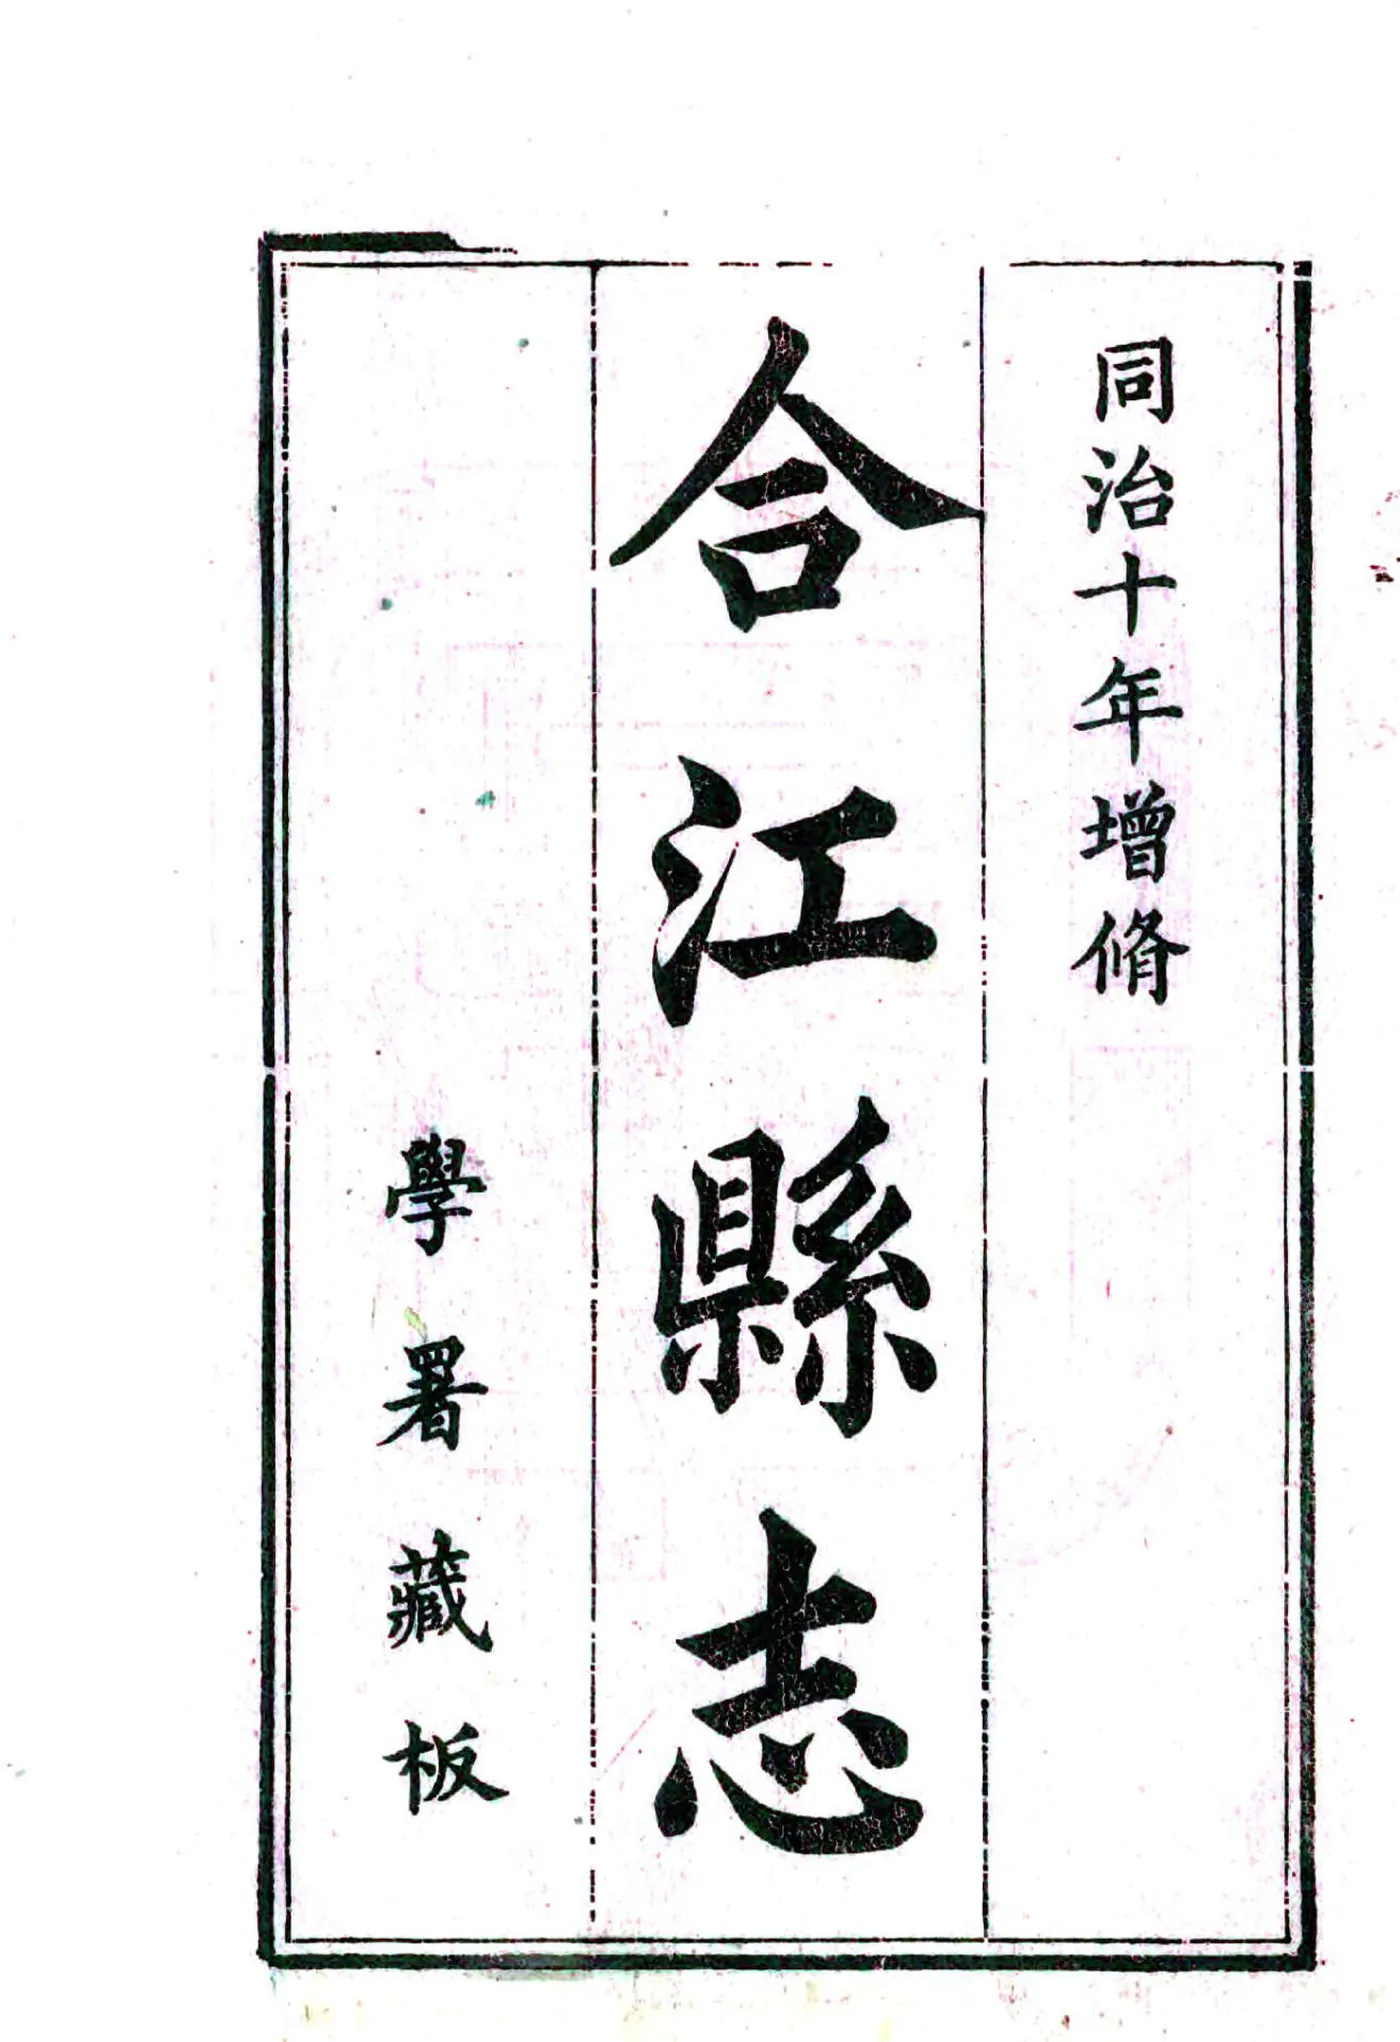 同治十年增脩
合江縣志
學署藏板